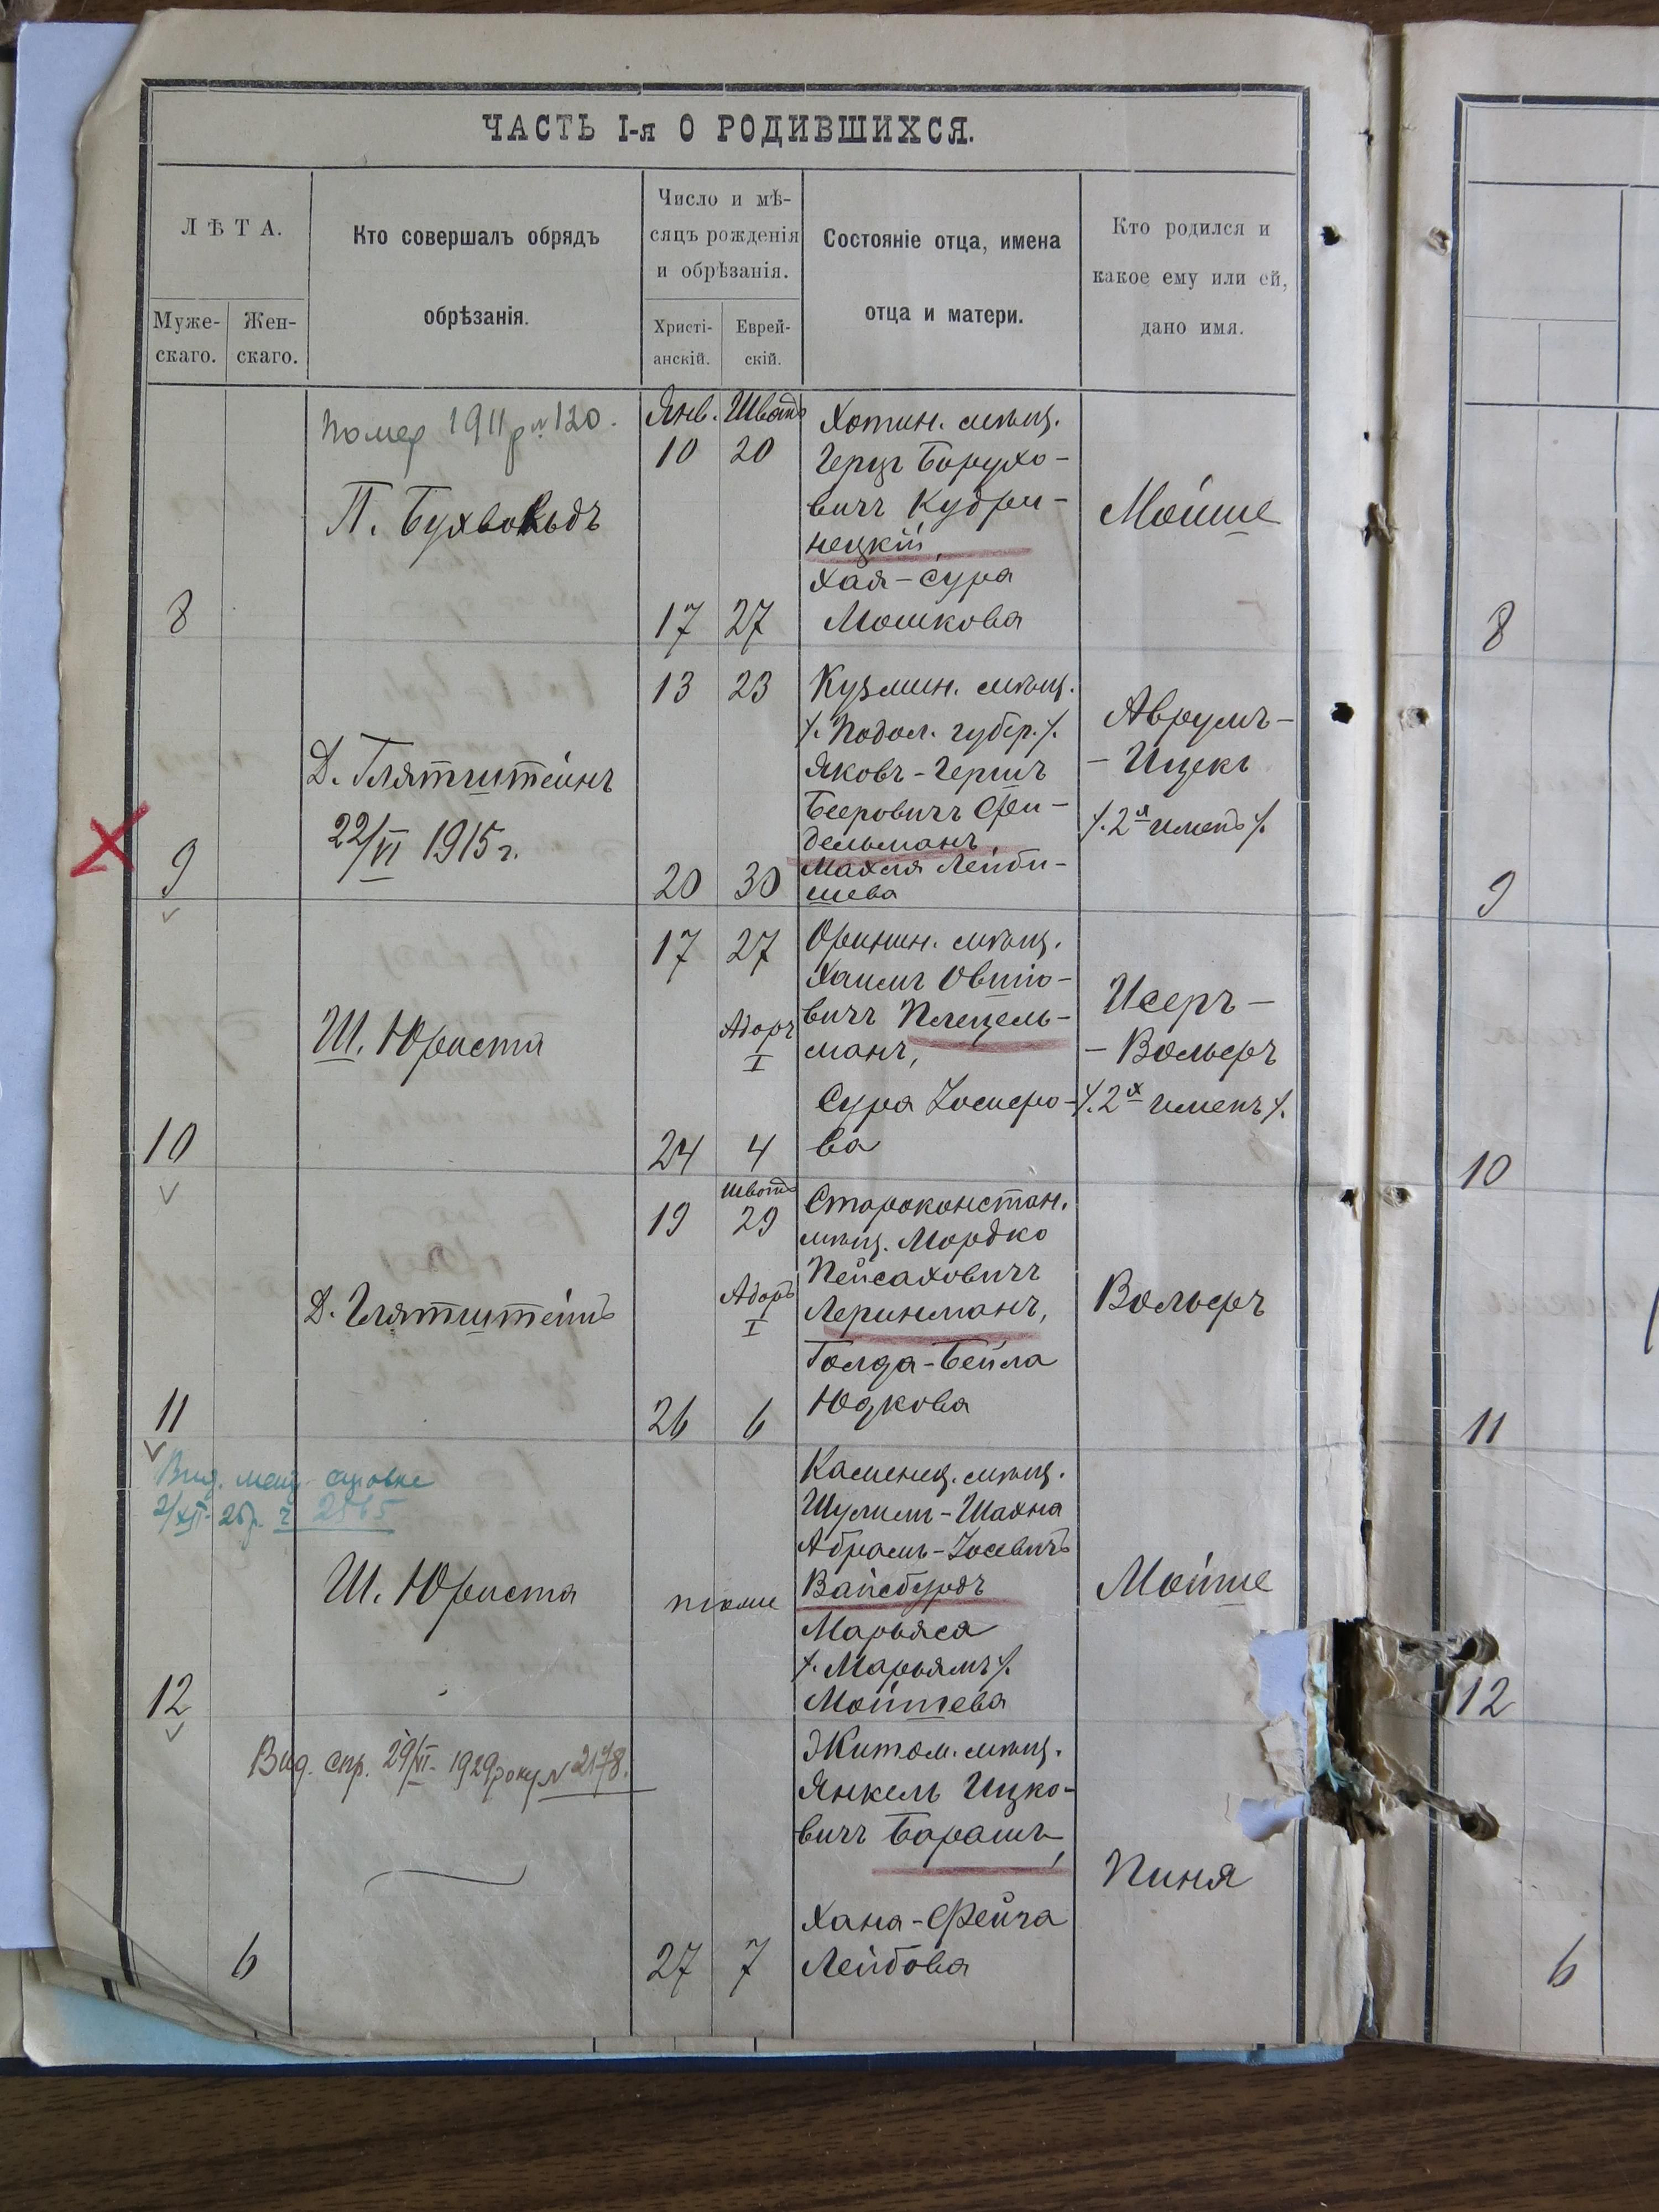 ЧАСТЬ I-я О РОДИВШИХСЯ.
ЛѢТА.
Муже-
скаго.
Жен-
скаго.
Кто совершалъ обрядъ
обрѣзанія.
Число и мѣ-
сяцъ рожденія
и обрѣзанія.
Христі-
анскій.
Еврей-
скій.
Состояніе отца, имена
отца и матери.
Кто родился и
какое ему или ей,
дано имя.
8
Помер 1911 р № 120.
П. Бухвольдъ
Янв. Шватъ
10 20
17 27
Хотин. мѣщ.
Герцъ Борухо-
вичъ Кудри-
нецкій,
Хая-Сура
Мошкова
Мойше
8
9
Д. Глятштейнъ
22/VI 1915 г.
13 23
20 30
Кузмин. мѣщ.
/. Подол. губер. /.
Яковъ-Гершъ
Беровичъ Фей-
дельманъ
Махля Лейби-
шева
Аврумъ-
- Ицекъ
/. 2я именъ /.
9
10
Ш. Юриста
17 27
Адаръ
I
24 4
Оринин. мѣщ.
Хаимъ Овшіо-
вичъ Плецель-
манъ,
Сура Іосифо-
ва
Исеръ-
- Вольфъ
/. 2х именъ /.
10
11
Д. Глятштейнъ
Шватъ
19 29
Адаръ
I
26 6
Староконстан.
мѣщ. Мордко
Пейсаховичъ
Лернеманъ,
Голда-Бейла
Юдкова
Вольфъ
11
Вид.
2/XII- 26 р. № 2865
12
Ш. Юриста
тѣже
Каменец. мѣщ.
Шулим-Шахна
Абрамъ-Іосевичъ
Вайсбурдъ
Марьяса
/. Марьямъ /.
Мойшева
Мойше
12
Вид. спр. 29/VI- 1929 року № 2178.
6
27 7
Житом. мѣщ.
Янкель Ицко-
вичъ Барашъ,
Хана-Фейга
Лейбова
Пиня
6